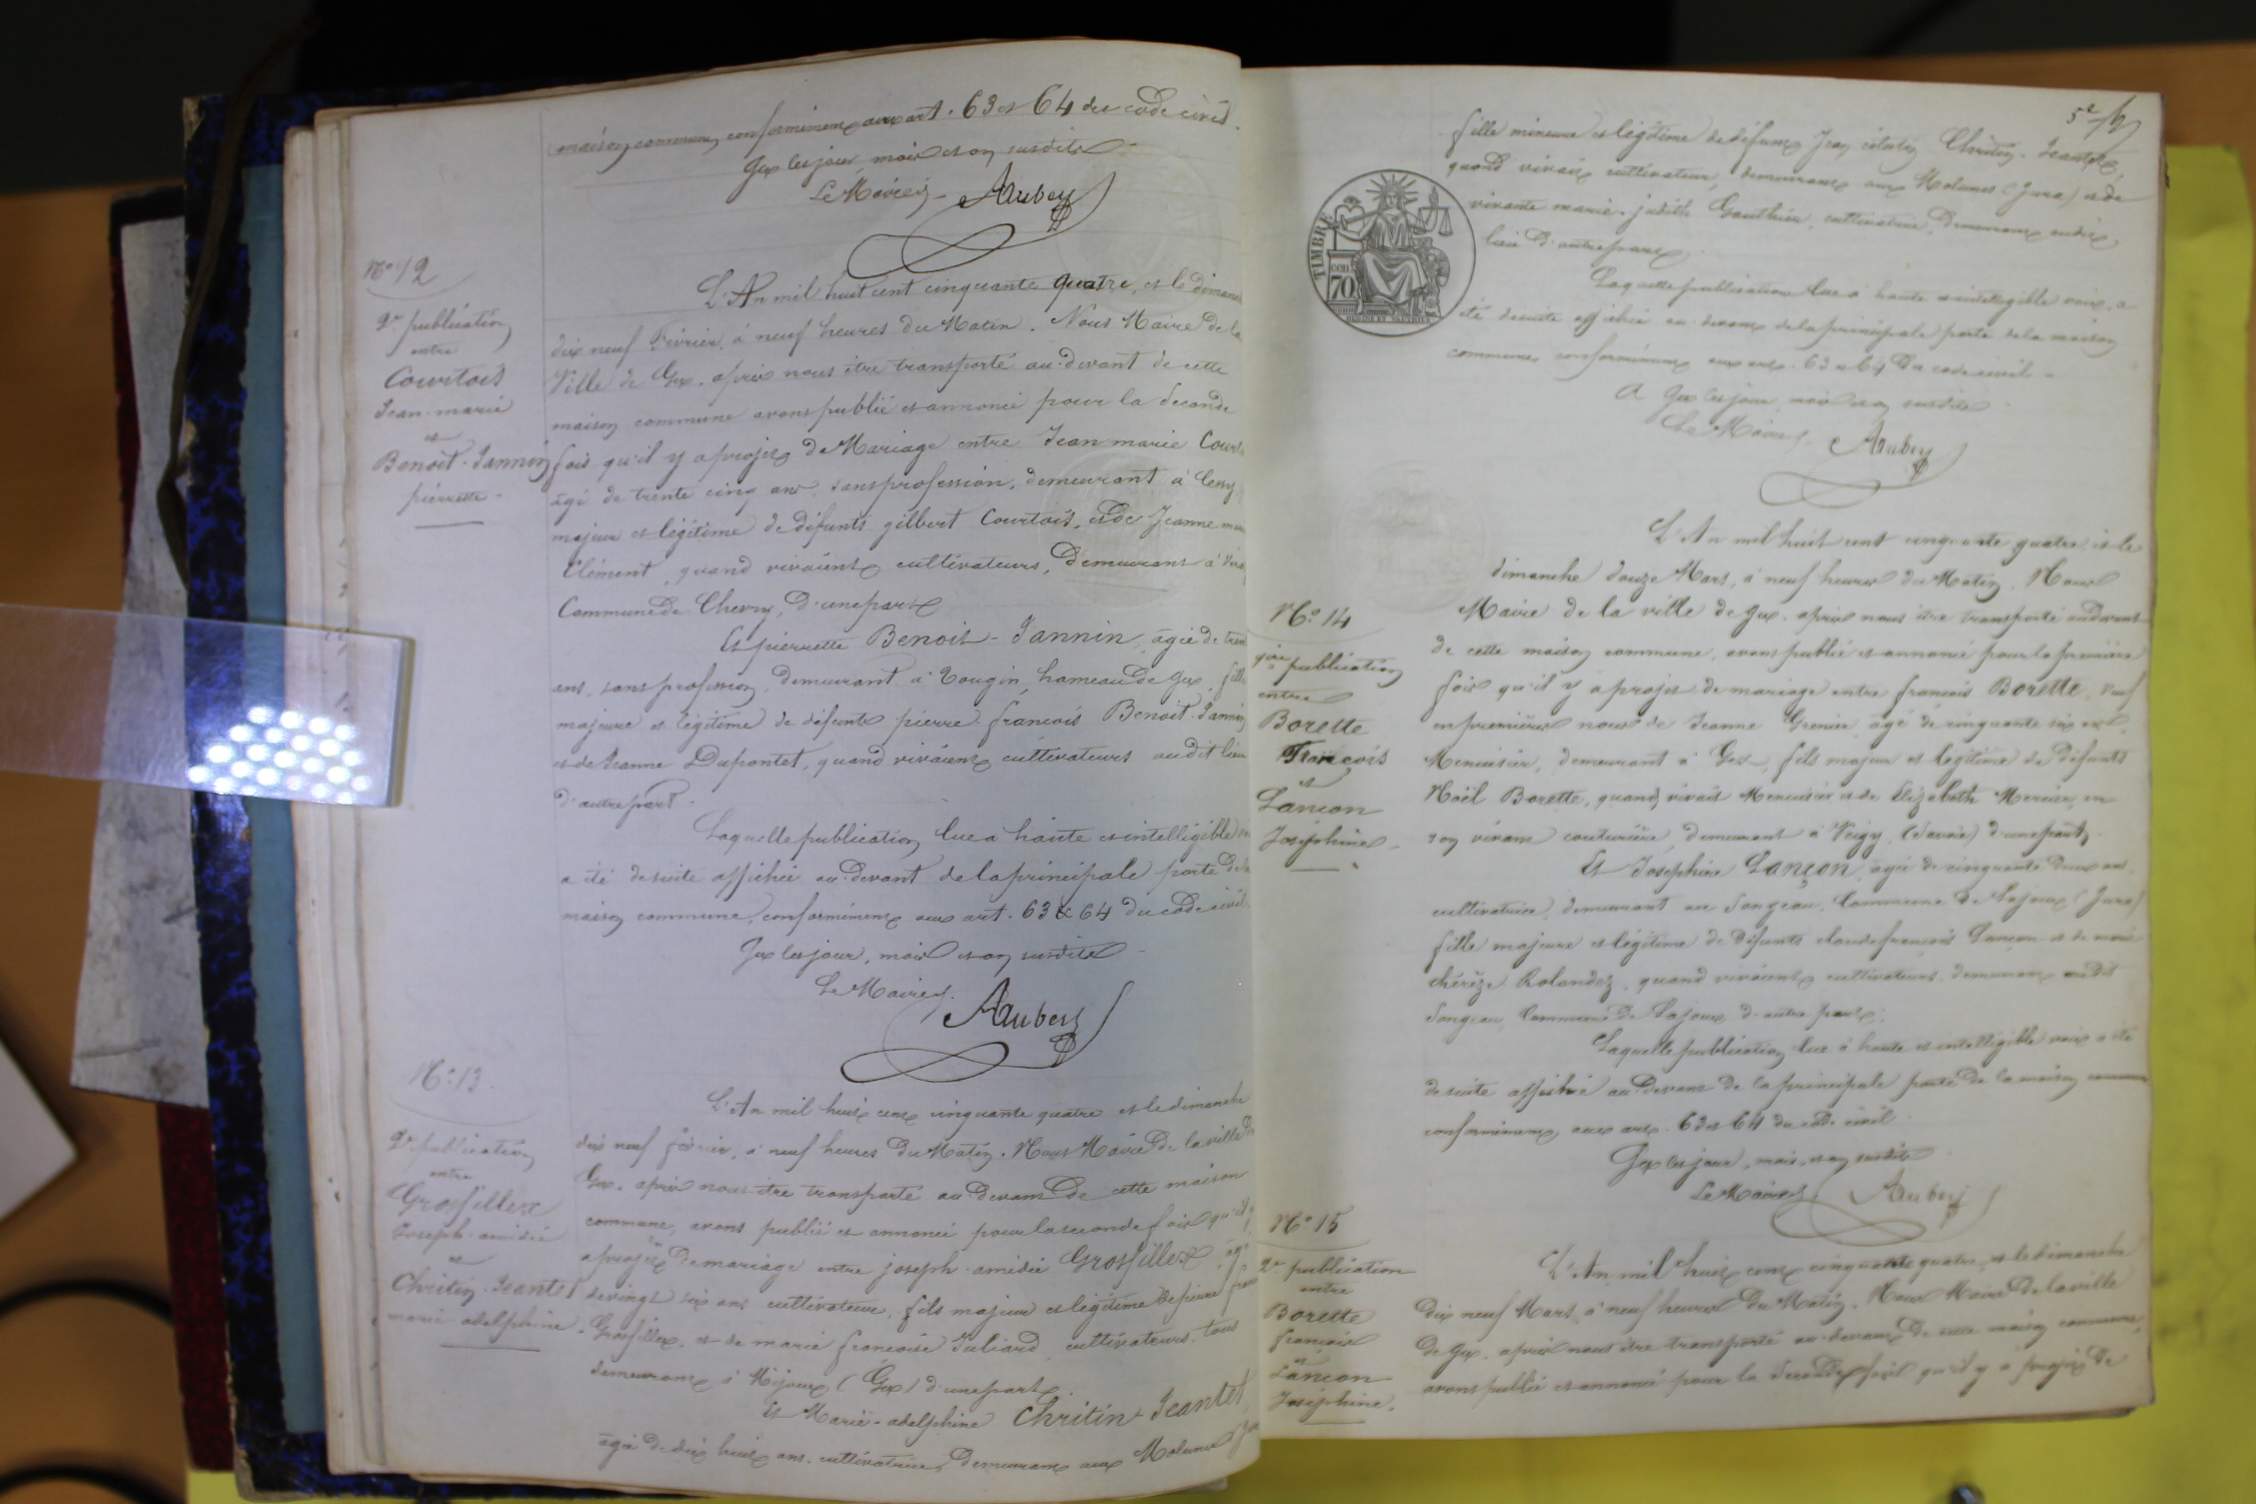 maison commune, conformément aux art. 63 et 64 du code civil.
Gex les jour, mois et an susdits
Le Maire, Aubery
No. 12
2e publication
entre
Courtois
Jean-marie
et
Benoit-Jannin
pierrette
L'An mil huit cent cinquante quatre, et le dimanche
dix neuf Février, à neuf heures du Matin. Nous Maire de la
Ville de Gex, après nous être transporté au-devant de cette
maison commune avons publié et annoncé pour la Seconde
fois qu'il y a projet de Mariage entre Jean marie Courtois
âgé de trente cinq ans, sans profession, demeurant à Cessy
majeur et légitime de défunts gilbert Courtois, et de Jeanne marie
Clément, quand vivaient cultivateurs, demeurans à
Commune de Chevry, d'une part
Et pierrette Benoit-Jannin, âgée de trente
ans, sans profession, demeurant à Tougin, hameau de Gex, fille
majeure et légitime de défunts pierre françois Benoit-Jannin
et de Jeanne Dupontet, quand vivaient cultivateurs audit lieu
d'autre part.
Laquelle publication lue a haute et intelligible voix
a été desuite affichée au-devant de la principale porte de la
maison commune, conformément aux art. 63 & 64 du code civil.
Gex les jour, mois et an susdits
Le Maire, Aubery
No. 13
2e publication
entre
Grosfillex
Joseph-amédée
et
Chritin-Jeantet
marie adelphine
L'An mil huit cent cinquante quatre et le dimanche
dix neuf février, à neuf heures du Matin. Nous Maire de la ville de
Gex, après nous être transporté au-devant de cette maison
commune, avons publié et annoncé pour la seconde fois qu'il y
a projet de mariage entre joseph-amédée Grosfillex, âgé
de vingt six ans cultivateur, fils majeur et légitime de pierre
Grosfillex, et de marie françoise Juliard, cultivateurs, tous
demeurans à Mijoux (Gex) d'une part
Et Marie-adelphine Chritin-Jeantet
âgée de dix huit ans, cultivatrice, demeurans aux Molunes
5e
fille mineure et légitime de défunt Jean Chritin-Jeantet,
quand vivait cultivateur, demeurans aux Molunes (Jura) et de
vivante marie-judith Gauthier, cultivatrice, demeurans audit
lieu d'autre part
Laquelle publication lue à haute et intelligible voix, a
été desuite affichée au-devant de la principale porte de la maison
commune, conformément aux art. 63 et 64 du code civil
A Gex les jour, mois et an susdits
Le Maire, Aubery
TIMBRE
70
No. 14
1ère publication
entre
Borette
François
et
Lançon
Joséphine
L'An mil huit cent cinquante quatre et le
dimanche douze Mars, à neuf heures du Matin. Nous
Maire de la ville de Gex, après nous être transporté au devant
de cette maison commune, avons publié et annoncé pour la première
fois qu'il y a projet de mariage entre françois Borette, veuf
en premières noces de Jeanne Grenier, âgé de cinquante six ans,
Menuisier, demeurant à Gex, fils majeur et légitime de défunts
Noël Borette, quand vivait Menuisier et de Elizabeth Mercier, en
son vivant couturière, demeurant à Veigy (Savoie) d'une part,
Et Josephine Lançon, âgée de cinquante deux ans,
cultivatrice, demeurant au Songeau, Commune de Lajoux (Jura)
fille majeure et légitime de défunts claude françois Lançon et de marie
thérèze Rolandez, quand vivaient cultivateurs demeurans audit
Songeau, Commune de Lajoux d'autre part.
Laquelle publication lue à haute et intelligible voix a été
desuite affichée au-devant de la principale porte de la maison commune
conformément aux art. 63 et 64 du code civil
Gex les jour, mois et an susdits
Le Maire, Aubery
No. 15
2e publication
entre
Borette
françois
et
Lançon
Joséphine.
L'An mil huit cent cinquante quatre, et le dimanche
dix neuf Mars, à neuf heures du Matin. Nous Maire de la ville
de Gex, après nous être transporté au-devant de cette maison commune,
avons publié et annoncé pour la Seconde fois qu'il y a projet de